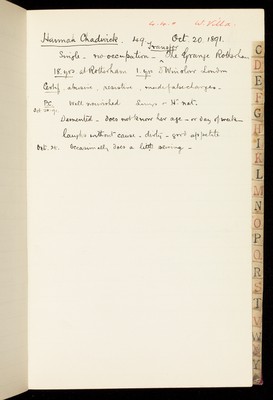 W. Villa.
Hannah Chadwick. 49. Oct. 20. 1891.
Transfer
Single - no occupation - The Grange Rotherham
18 yrs at Rotherham 1 yr Winslow London
Certif abusive, resistive, made false charges.
P.C. Well nourished Lungs + Ht nat.
Demented - Does not know her age - or day of week
laughs without cause - dirty - good appetite
Oct. 30. Occasionally does a little sewing -
C
D
E
F
G
H
I
K
L
M
N
O
P
Q
R
S
T
V
W
Y